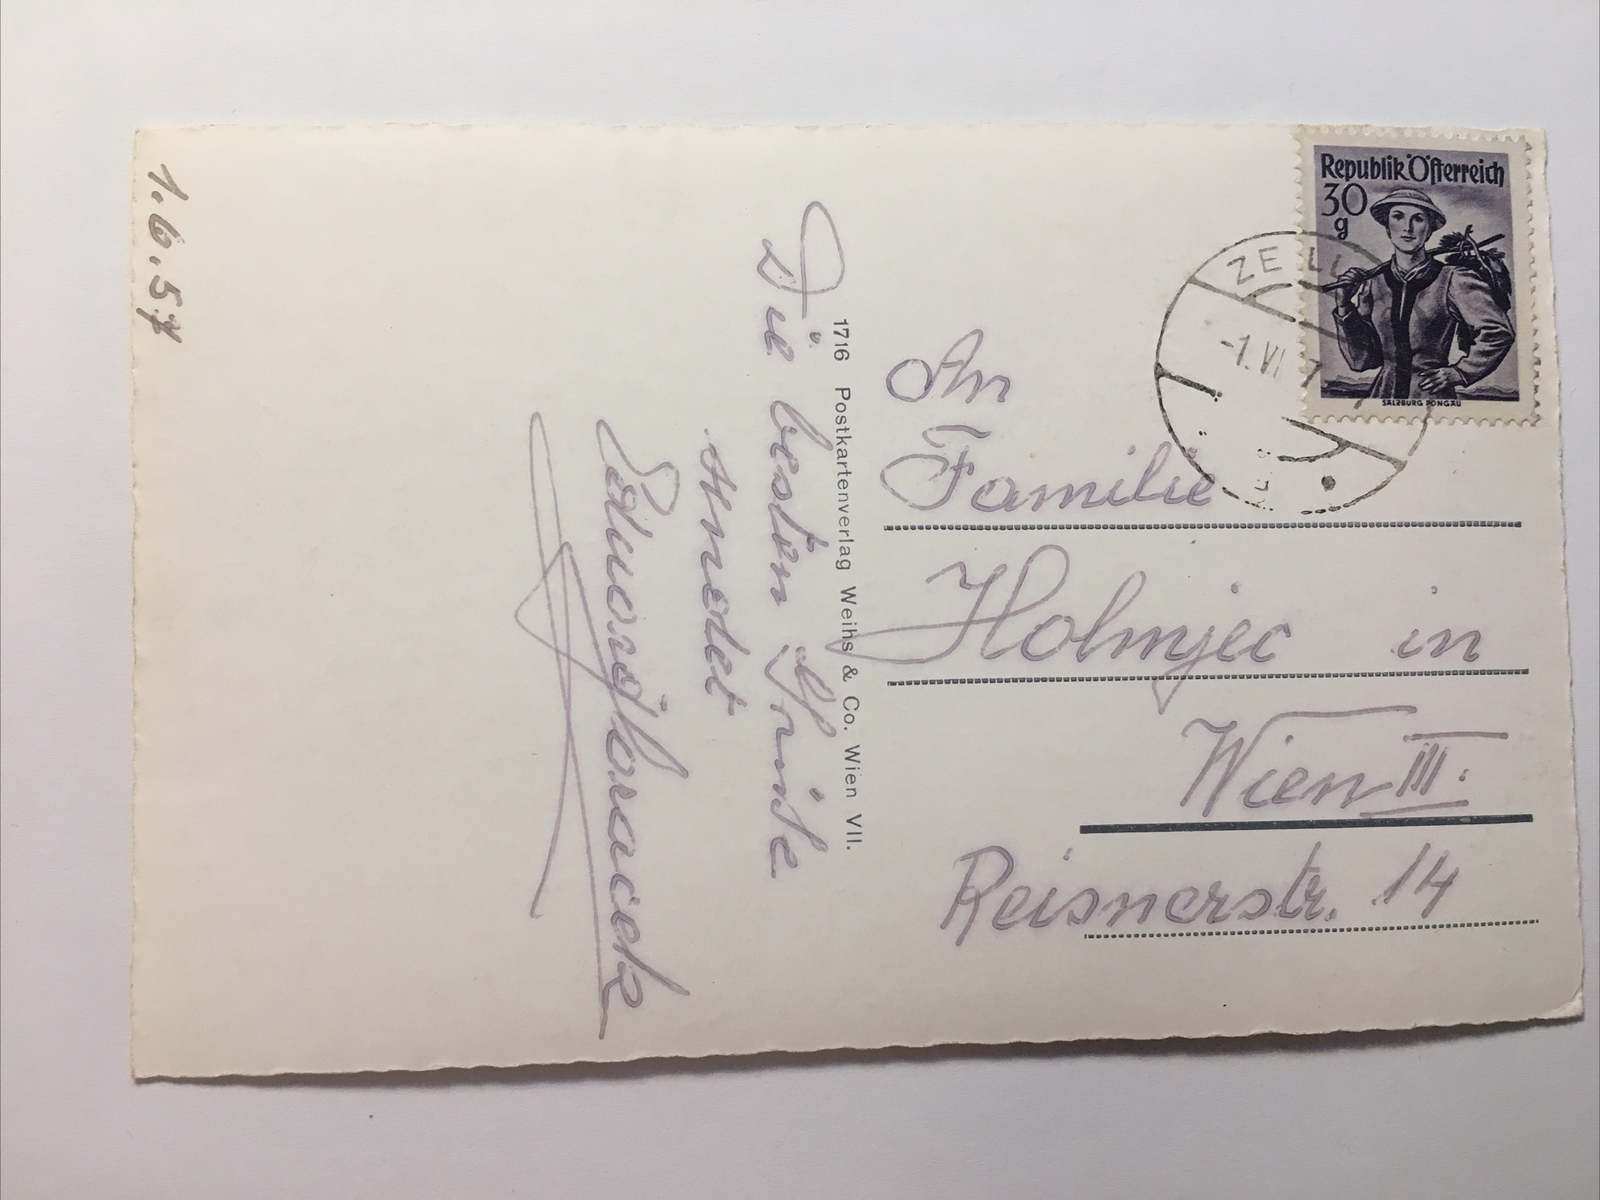 1.6.57
Die besten Grüße
sendet
1716 Postkartenverlag Weihs & Co. Wien VII.
Republik Österreich
30
g
SALZBURG PONGAU
ZELL
-1.VI 7
An
Familie
Holmjec in
Wien III.
Reisnerstr. 14